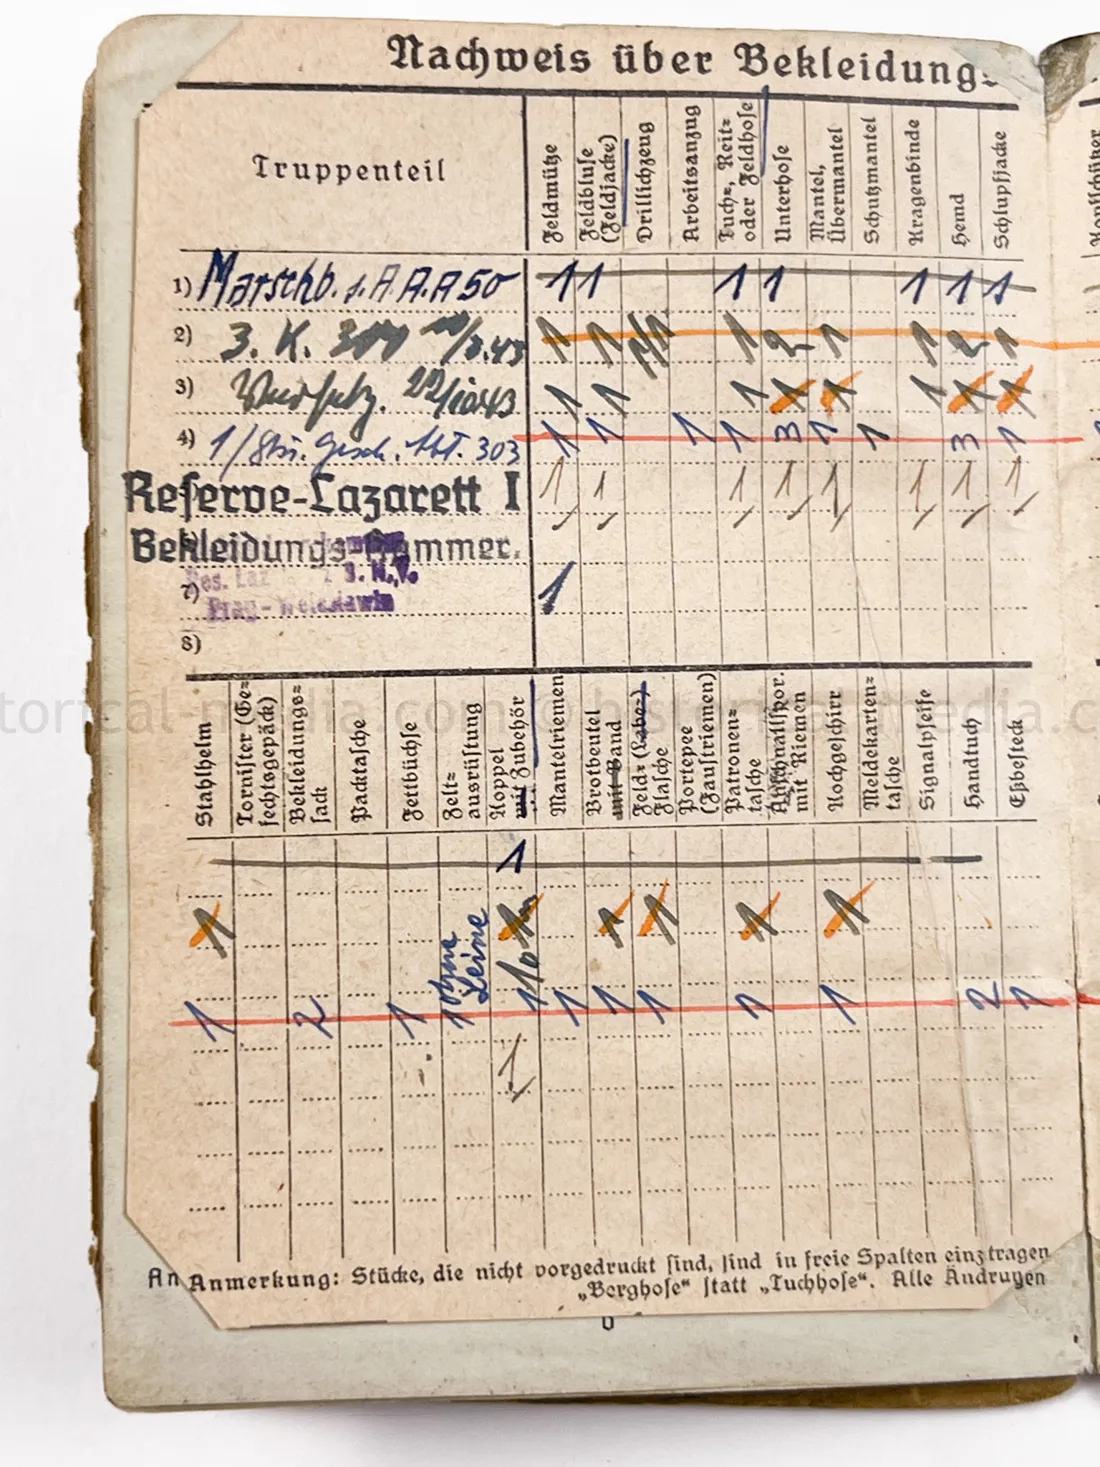 Nachweis über Bekleidung-
Truppenteil
Feldmütze
Feldbluse
(Feldjacke)
Drillichzeug
Arbeitsanzug
Tuch-, Reit-
oder Feldhose
Unterhose
Mantel,
Übermantel
Schutzmantel
Kragenbinde
Hemd
Schlupfjacke
1) Marschb. A.A.A 50 1 1 1 1 1 1 1
2) 3. K. /3.43 1 1 1 2 1 1 2 1
3) 22/10 43 1 1 1 1 1 1 1 1
4) 1/Stu. Gesch. Abt. 303 1 1 1 1 3 1 1 3 1
Reserve-Lazarett I 1 1 1 1 1 1 1 1
Bekleidungs-Kammer.
Res. Laz
7) 1
Prag-
8)
Stahlhelm
Tornister (Ge-
fechtsgepäck)
Bekleidungs-
sack
Packtasche
Fettbüchse
Zelt-
ausrüstung
Koppel
mit Zubehör
Mantelriemen
Brotbeutel
mit Band
Feld- (Labe-)
Flasche
Portepee
(Faustriemen)
Patronen-
tasche
mit Riemen
Kochgeschirr
Meldekarten-
tasche
Signalpfeife
Handtuch
Eßbesteck
1
1 1 1 1 1 1
ohne
Leine
1 2 1 1 1 1 1 1 1 1 2 1
1
An Anmerkung: Stücke, die nicht vorgedruckt sind, sind in freie Spalten einzutragen
„Berghose“ statt „Tuchhose“. Alle Ändrugen